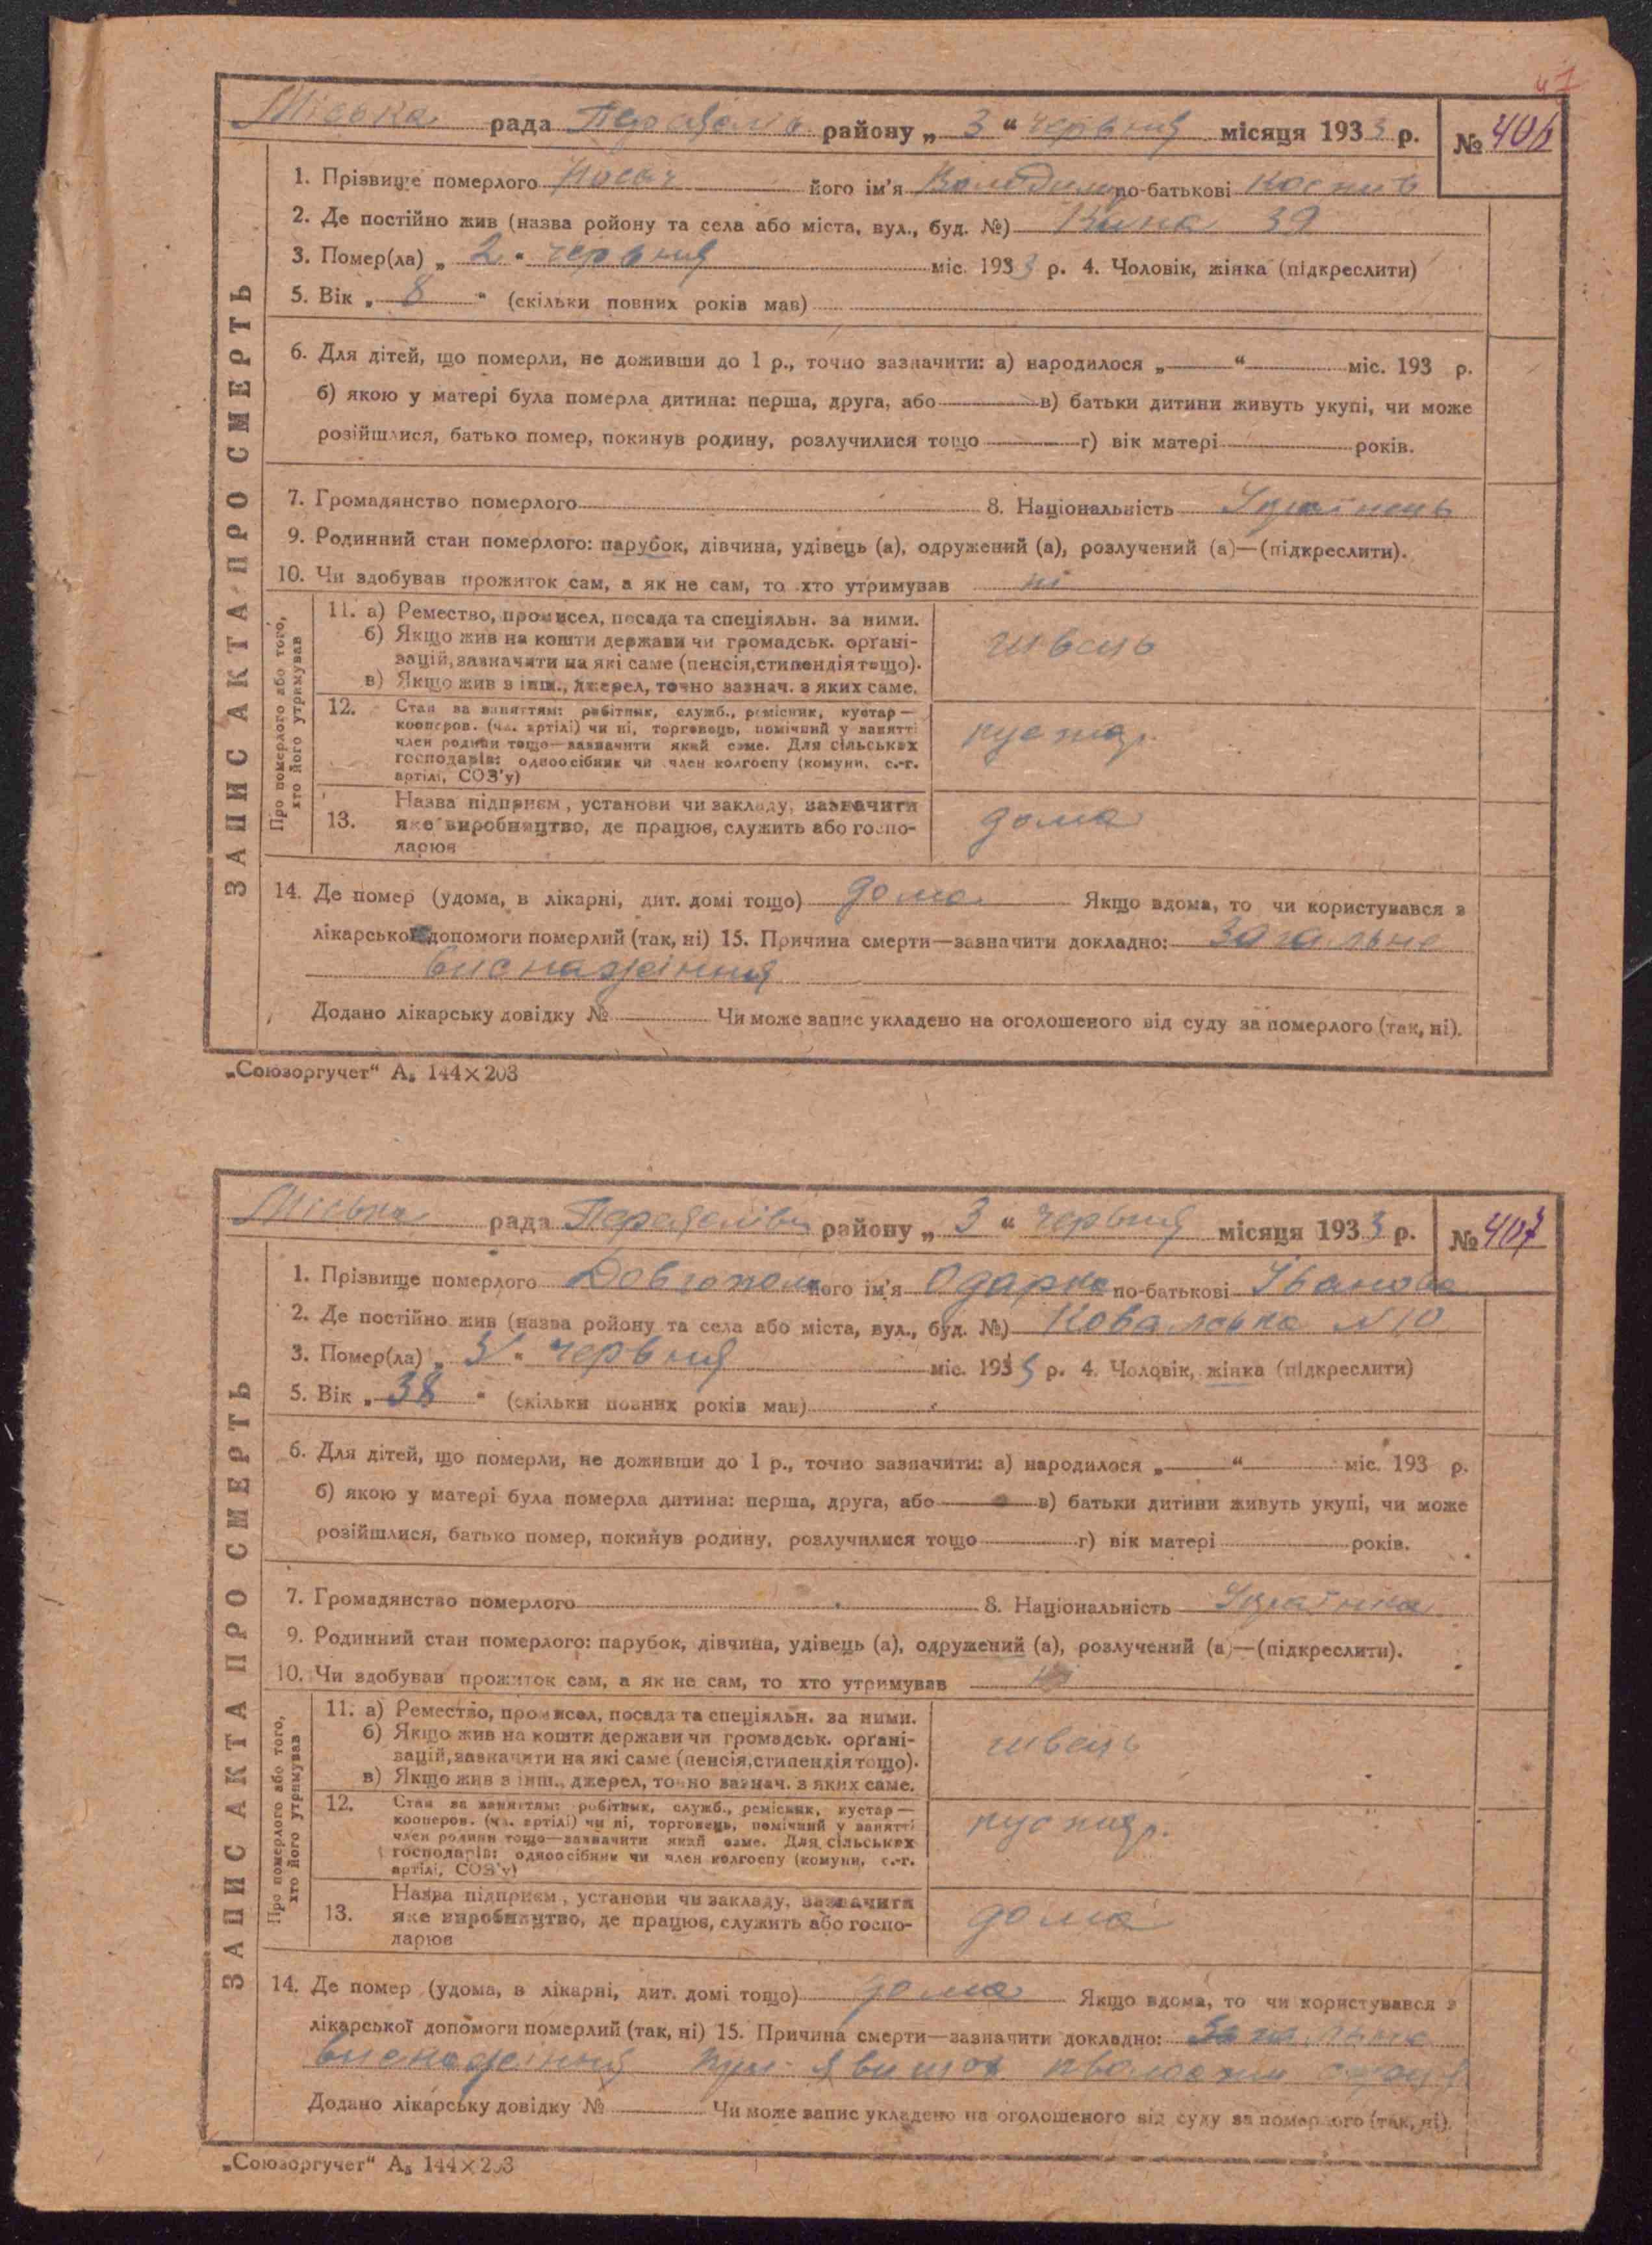 47
Міська рада Переяслів району „ 3 “ червня місяця 1933 р. № 406
ЗАПИС АКТА ПРО СМЕРТЬ
1. Прізвище померлого Носач його ім'я Володимир по-батькові
2. Де постійно жив (назва ройону та села або міста, вул., буд. №) 39
3. Помер(ла) „ 2 “ червня міс. 1933 р. 4. Чоловік, жінка (підкреслити)
5. Вік „ 8 “ (скільки повних років мав)
6. Для дітей, що померли, не доживши до 1 р., точно зазначити: а) народилося „ “ міс. 193 р.
б) якою у матері була померла дитина: перша, друга, або в) батьки дитини живуть укупі, чи може
розійшлися, батько помер, покинув родину, розлучилися тощо г) вік матері років.
7. Громадянство померлого 8. Національність Українець
9. Родинний стан померлого: парубок, дівчина, удівець (а), одружений (а), розлучений (а)—(підкреслити).
10. Чи здобував прожиток сам, а як не сам, то хто утримував ні
Про померлого або того,
хто його утримував
11. а) Ремество, промисел, посада та спеціяльн. за ними.
б) Якщо жив на кошти держави чи громадськ. органі-
зацій, зазначити на які саме (пенсія, стипендія тощо).
в) Якщо жив з інш., джерел, точно зазнач. з яких саме.
швець
12. Стан за заняттям: робітник, служб., ремісник, кустар—
кооперов. (чл. артілі) чи ні, торговець, помічний у занятті
член родини тощо—зазначити який саме. Для сільських
господарів: одноосібник чи член колгоспу (комуни, с.-г.
артілі, СОЗ'у)
кустар.
13. Назва підприєм., установи чи закладу, зазначити
яке виробництво, де працює, служить або госпо-
дарює
дома
14. Де помер (удома, в лікарні, дит. домі тощо) дома Якщо вдома, то чи користувався з
лікарської допомоги померлий (так, ні) 15. Причина смерти—зазначити докладно: Загальне
виснаження
Додано лікарську довідку № Чи може запис укладено на оголошеного від суду за померлого (так, ні).
„Союзоргучет“ А₅ 144×203
Міська рада Переяслівськ району „ 3 “ червня місяця 1933 р. № 407
ЗАПИС АКТА ПРО СМЕРТЬ
1. Прізвище померлого його ім'я Одарка по-батькові Іванова
2. Де постійно жив (назва ройону та села або міста, вул., буд. №) Ковальська №10
3. Помер(ла) „ 3 “ червня міс. 1933 р. 4. Чоловік, жінка (підкреслити)
5. Вік „ 38 “ (скільки повних років мав)
6. Для дітей, що померли, не доживши до 1 р., точно зазначити: а) народилося „ “ міс. 193 р.
б) якою у матері була померла дитина: перша, друга, або в) батьки дитини живуть укупі, чи може
розійшлися, батько помер, покинув родину, розлучилися тощо г) вік матері років.
7. Громадянство померлого 8. Національність Українка
9. Родинний стан померлого: парубок, дівчина, удівець (а), одружений (а), розлучений (а)—(підкреслити).
10. Чи здобував прожиток сам, а як не сам, то хто утримував ні
Про померлого або того,
хто його утримував
11. а) Ремество, промисел, посада та спеціяльн. за ними.
б) Якщо жив на кошти держави чи громадськ. органі-
зацій, зазначити на які саме (пенсія, стипендія тощо).
в) Якщо жив з інш., джерел, точно зазнач. з яких саме.
швець
12. Стан за заняттям: робітник, служб., ремісник, кустар—
кооперов. (чл. артілі) чи ні, торговець, помічний у занятті
член родини тощо—зазначити який саме. Для сільських
господарів: одноосібник чи член колгоспу (комуни, с.-г.
артілі, СОЗ'у)
кустар.
13. Назва підприєм., установи чи закладу, зазначити
яке виробництво, де працює, служить або госпо-
дарює
дома
14. Де помер (удома, в лікарні, дит. домі тощо) дома Якщо вдома, то чи користувався з
лікарської допомоги померлий (так, ні) 15. Причина смерти—зазначити докладно: Загальне
виснаження при явищах серця
Додано лікарську довідку № Чи може запис укладено на оголошеного від суду за померлого (так, ні).
„Союзоргучет“ А₅ 144×203